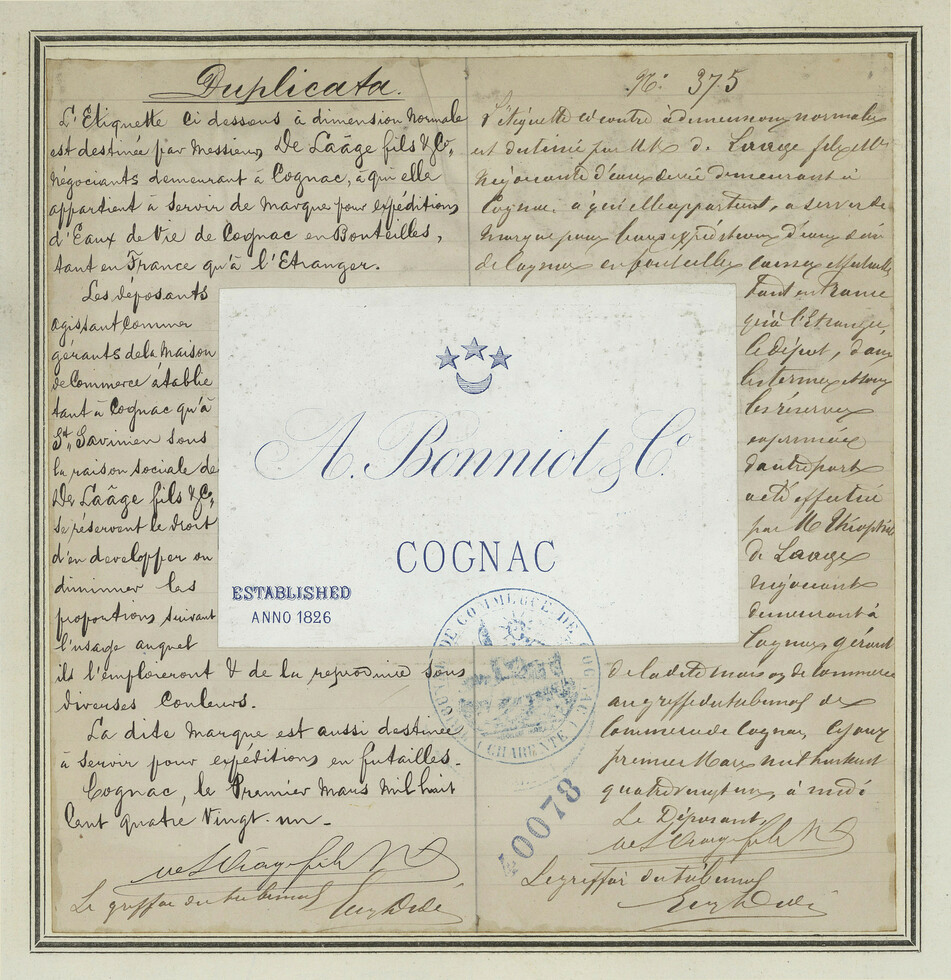 Duplicata.
L'Etiquette ci dessous à dimension normale
est destinée par Messieurs De Laâge fils & Co,
négociants demeurant à Cognac, à qui elle
appartient à servir de marque pour expéditions
d'Eaux de Vie de Cognac en Bouteilles,
tant en France qu'à l'Etranger.
Les déposants
agissant comme
gérants de la Maison
de Commerce établie
tant à Cognac qu'à
St. Savinien sous
la raison sociale de
De Laâge fils & Co,
se réservent le droit
d'en developper ou
diminuer les
proportions suivant
l'usage auquel
ils l'emploieront & de la reproduire sous
diverses Couleurs.
La dite Marque est aussi destinée
à servir pour expéditions en futailles.
Cognac, le Premier Mars Mil huit
Cent quatre Vingt-un-
Le greffier du tribunal
No: 375
l'étiquette ci contre à dimension normale
est destinée par MM de Laage fils &
négociants d'eaux de vie demeurant à
Cognac, à qui elle appartient, à servir de
marque pour leurs expéditions d'eaux de vie
de Cognac en bouteilles caisses et futailles
tant en France
qu'à l'Etranger,
le dépôt, dans
les termes et sous
les réserves
exprimées
d'autre part
a été effectué
par M Théophile
de Laage
négociant
demeurant à
Cognac, gérant
de la dite maison de commerce
au greffe du tribunal de
Commerce de Cognac, ce jour
premier Mars mil huit cent
quatre vingt un, à midi
Le Déposant
Le greffier du tribunal
A. Bonniot & Co
COGNAC
ESTABLISHED
ANNO 1826
TRIBUNAL DE COMMERCE DE COGNAC
CHARENTE
40078